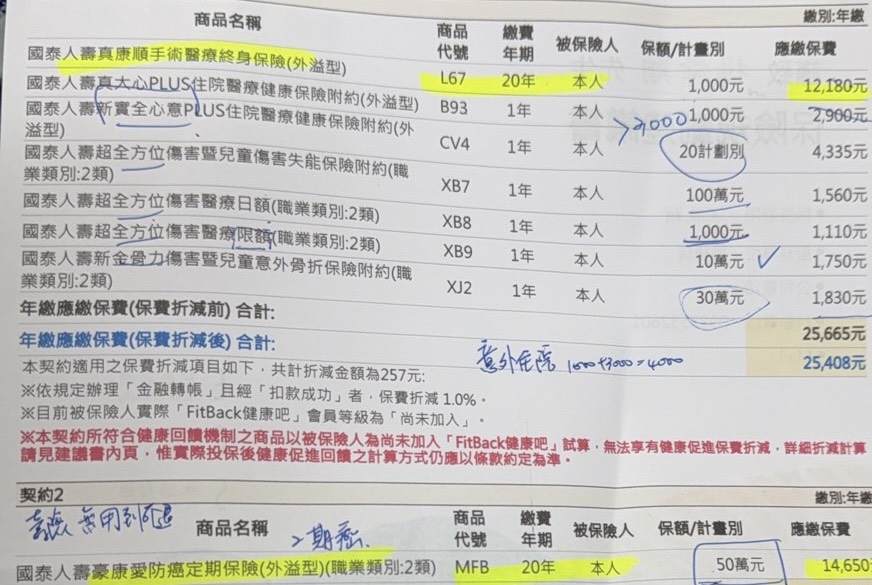 繳別:年繳
商品名稱 商品代號 繳費年期 被保險人 保額/計畫別 應繳保費
國泰人壽真康順手術醫療終身保險(外溢型) L67 20年 本人 1,000元 12,180元
國泰人壽真大心PLUS住院醫療健康保險附約(外溢型) B93 1年 本人 1,000元 2,900元
>3000
國泰人壽新實全心意PLUS住院醫療健康保險附約(外溢型) CV4 1年 本人 20計劃別 4,335元
國泰人壽超全方位傷害暨兒童傷害失能保險附約(職業類別:2類) XB7 1年 本人 100萬元 1,560元
國泰人壽超全方位傷害醫療日額(職業類別:2類) XB8 1年 本人 1,000元 1,110元
國泰人壽超全方位傷害醫療限額(職業類別:2類) XB9 1年 本人 10萬元 1,750元
國泰人壽新金骨力傷害暨兒童意外骨折保險附約(職業類別:2類) XJ2 1年 本人 30萬元 1,830元
年繳應繳保費(保費折減前) 合計: 25,665元
年繳應繳保費(保費折減後) 合計: 25,408元
意外住院 1000+3000=4000
本契約適用之保費折減項目如下，共計折減金額為257元:
※依規定辦理「金融轉帳」且經「扣款成功」者，保費折減 1.0%。
※目前被保險人實際「FitBack健康吧」會員等級為「尚未加入」。
※本契約所符合健康回饋機制之商品以被保險人為尚未加入「FitBack健康吧」試算，無法享有健康促進保費折減，詳細折減計算
請見建議書內頁，惟實際投保後健康促進回饋之計算方式仍應以條款約定為準。
契約2 繳別:年繳
商品名稱 商品代號 繳費年期 被保險人 保額/計畫別 應繳保費
國泰人壽豪康愛防癌定期保險(外溢型)(職業類別:2類) MFB 20年 本人 50萬元 14,650